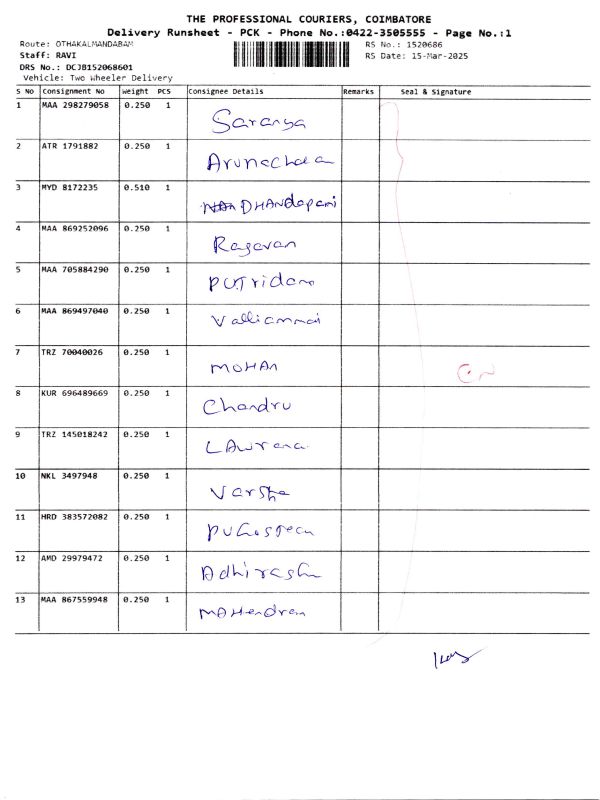 THE PROFESSIONAL COURIERS, COIMBATORE
Delivery Runsheet - PCK - Phone No.:0422-3505555 - Page No.:1
Route: OTHAKALMANDABAM RS No.: 1520686
Staff: RAVI RS Date: 15-Mar-2025
DRS No.: DCJB152068601
Vehicle: Two Wheeler Delivery
S No Consignment No Weight PCS Consignee Details Remarks Seal & Signature
1 MAA 298279058 0.250 1 Saranya
2 ATR 1791882 0.250 1
3 MYD 8172235 0.510 1 DHANdapani
4 MAA 869252096 0.250 1 Ragavan
5 MAA 705884290 0.250 1
6 MAA 869497040 0.250 1 Valliammai
7 TRZ 70040026 0.250 1 MOHAN
8 KUR 696489669 0.250 1 Chandru
9 TRZ 145018242 0.250 1
10 NKL 3497948 0.250 1 Varsha
11 HRD 383572082 0.250 1
12 AMD 29979472 0.250 1
13 MAA 867559948 0.250 1 MAHendran